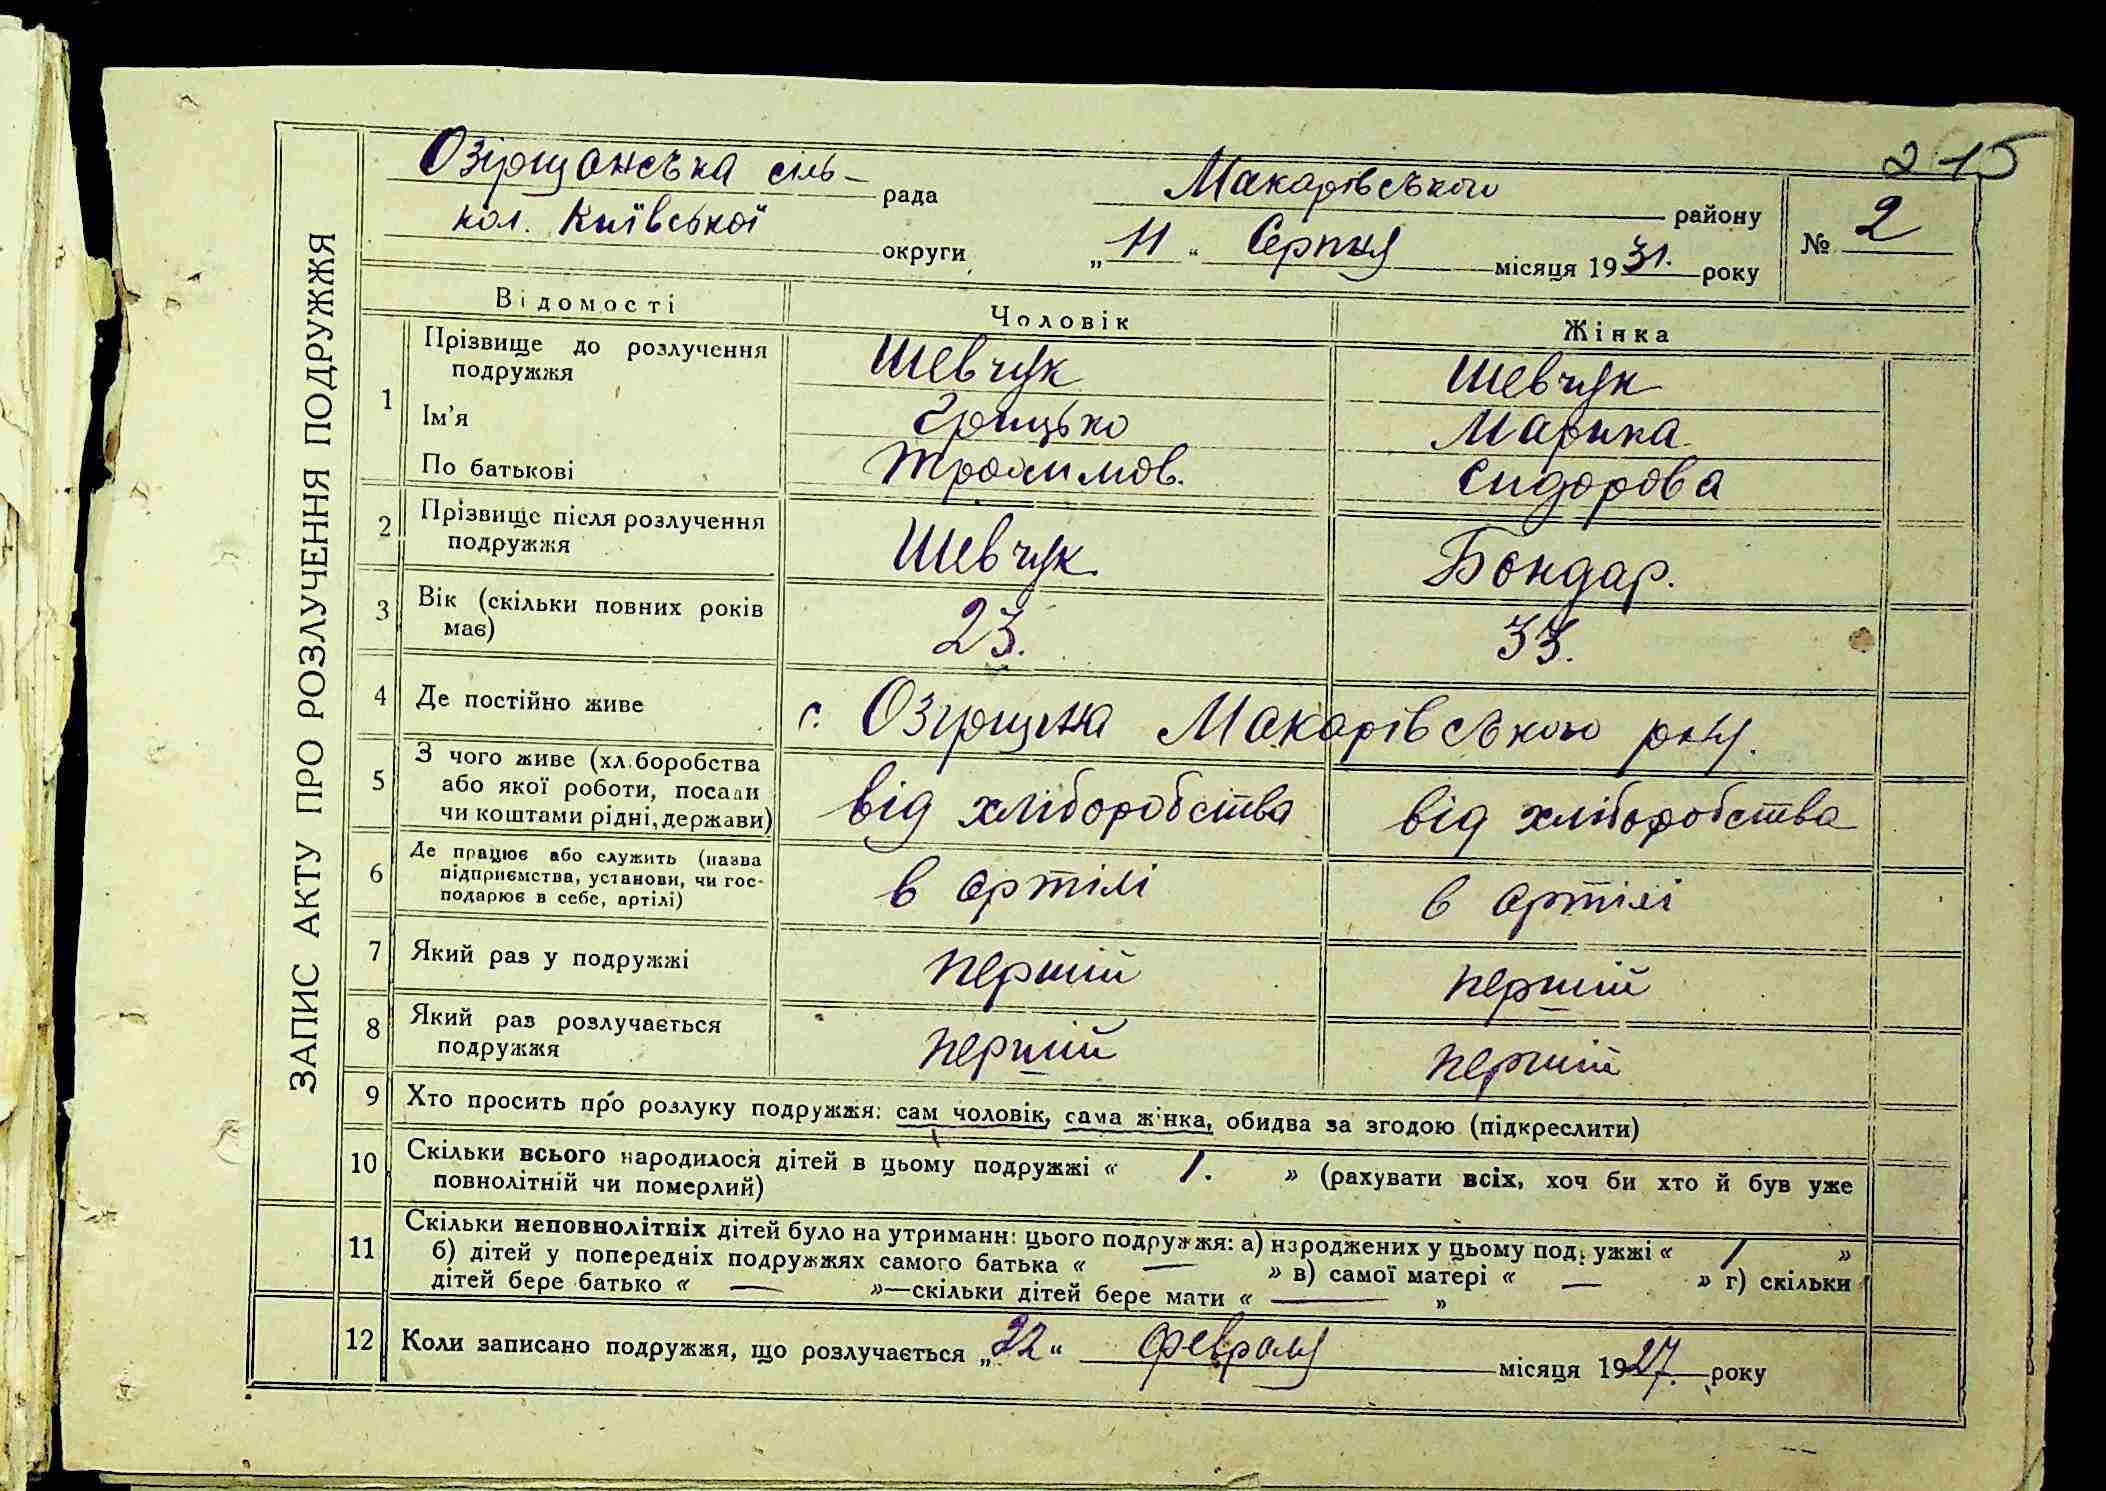 215
Озірщанська сіль- рада Макарівського району № 2
кол. Київської округи „11“ Серпня місяця 1931. року
ЗАПИС АКТУ ПРО РОЗЛУЧЕННЯ ПОДРУЖЖЯ
Відомості Чоловік Жінка
1 Прізвище до розлучення подружжя Шевчук Шевчук
Ім'я Грицько Марика
По батькові Трохимов. Сидорова
2 Прізвище після розлучення подружжя Шевчук. Бондар.
3 Вік (скільки повних років має) 23. 33.
4 Де постійно живе с. Озірщина Макарівського р-ну.
5 З чого живе (хліборобства
або якої роботи, посади
чи коштами рідні, держави) від хліборобства від хліборобства
6 Де працює або служить (назва
підприємства, установи, чи гос-
подарює в себе, артілі) в артілі в артілі
7 Який раз у подружжі перший перший
8 Який раз розлучається
подружжя перший перший
9 Хто просить про розлуку подружжя: сам чоловік, сама жінка, обидва за згодою (підкреслити)
10 Скільки всього народилося дітей в цьому подружжі « 1. » (рахувати всіх, хоч би хто й був уже
повнолітній чи померлий)
11 Скільки неповнолітніх дітей було на утриманні цього подружжя: а) народжених у цьому подружжі « 1 »
б) дітей у попередніх подружжях самого батька « — » в) самої матері « — » г) скільки
дітей бере батько « — »—скільки дітей бере мати « — »
12 Коли записано подружжя, що розлучається „22“ февраля місяця 1927. року